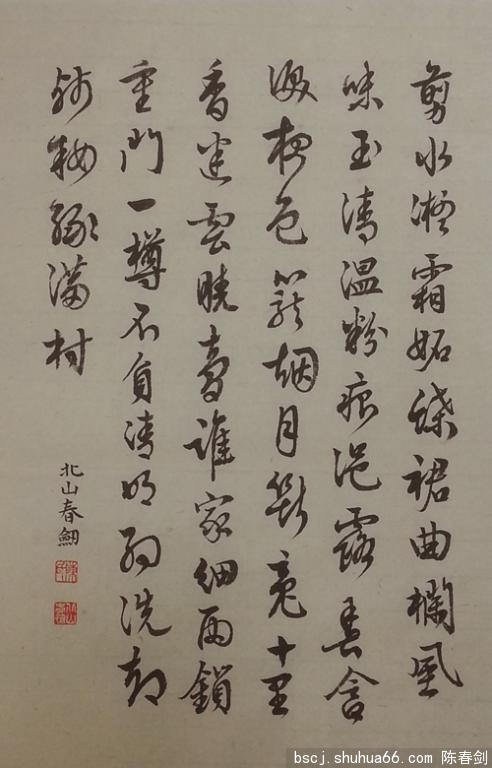 剪水凝霜妬蝶裙曲欄風
味玉清溫粉痕浥露春含
淚夜色籠烟月斷魂十里
香迷雲曉夢誰家細雨鎖
重門一樽不負清明約洗却
鉛粧綠滿村
北山春劒
bscj.shuhua66.com 陈春剑